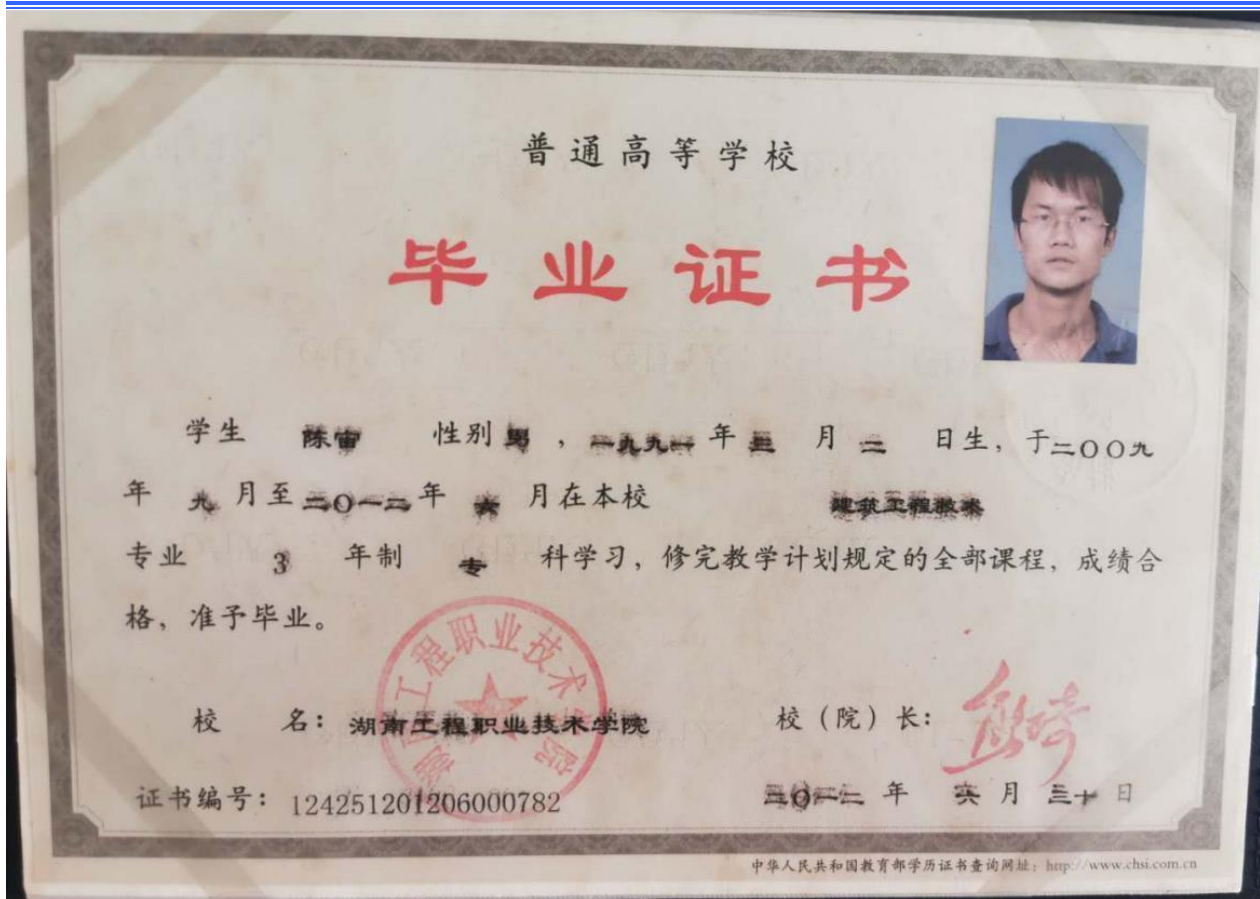 普通高等学校
毕业证书
学生 陈雷 性别 男，一九九一年 三 月 二 日生，于二〇〇九
年 九 月至二〇一二年 六 月在本校 建筑工程技术
专业 3 年制 专 科学习，修完教学计划规定的全部课程，成绩合
格，准予毕业。
湖南工程职业技术学院
校 名：湖南工程职业技术学院 校（院）长：
证书编号：124251201206000782 二〇一二 年 六 月 三十 日
中华人民共和国教育部学历证书查询网址：http://www.chsi.com.cn